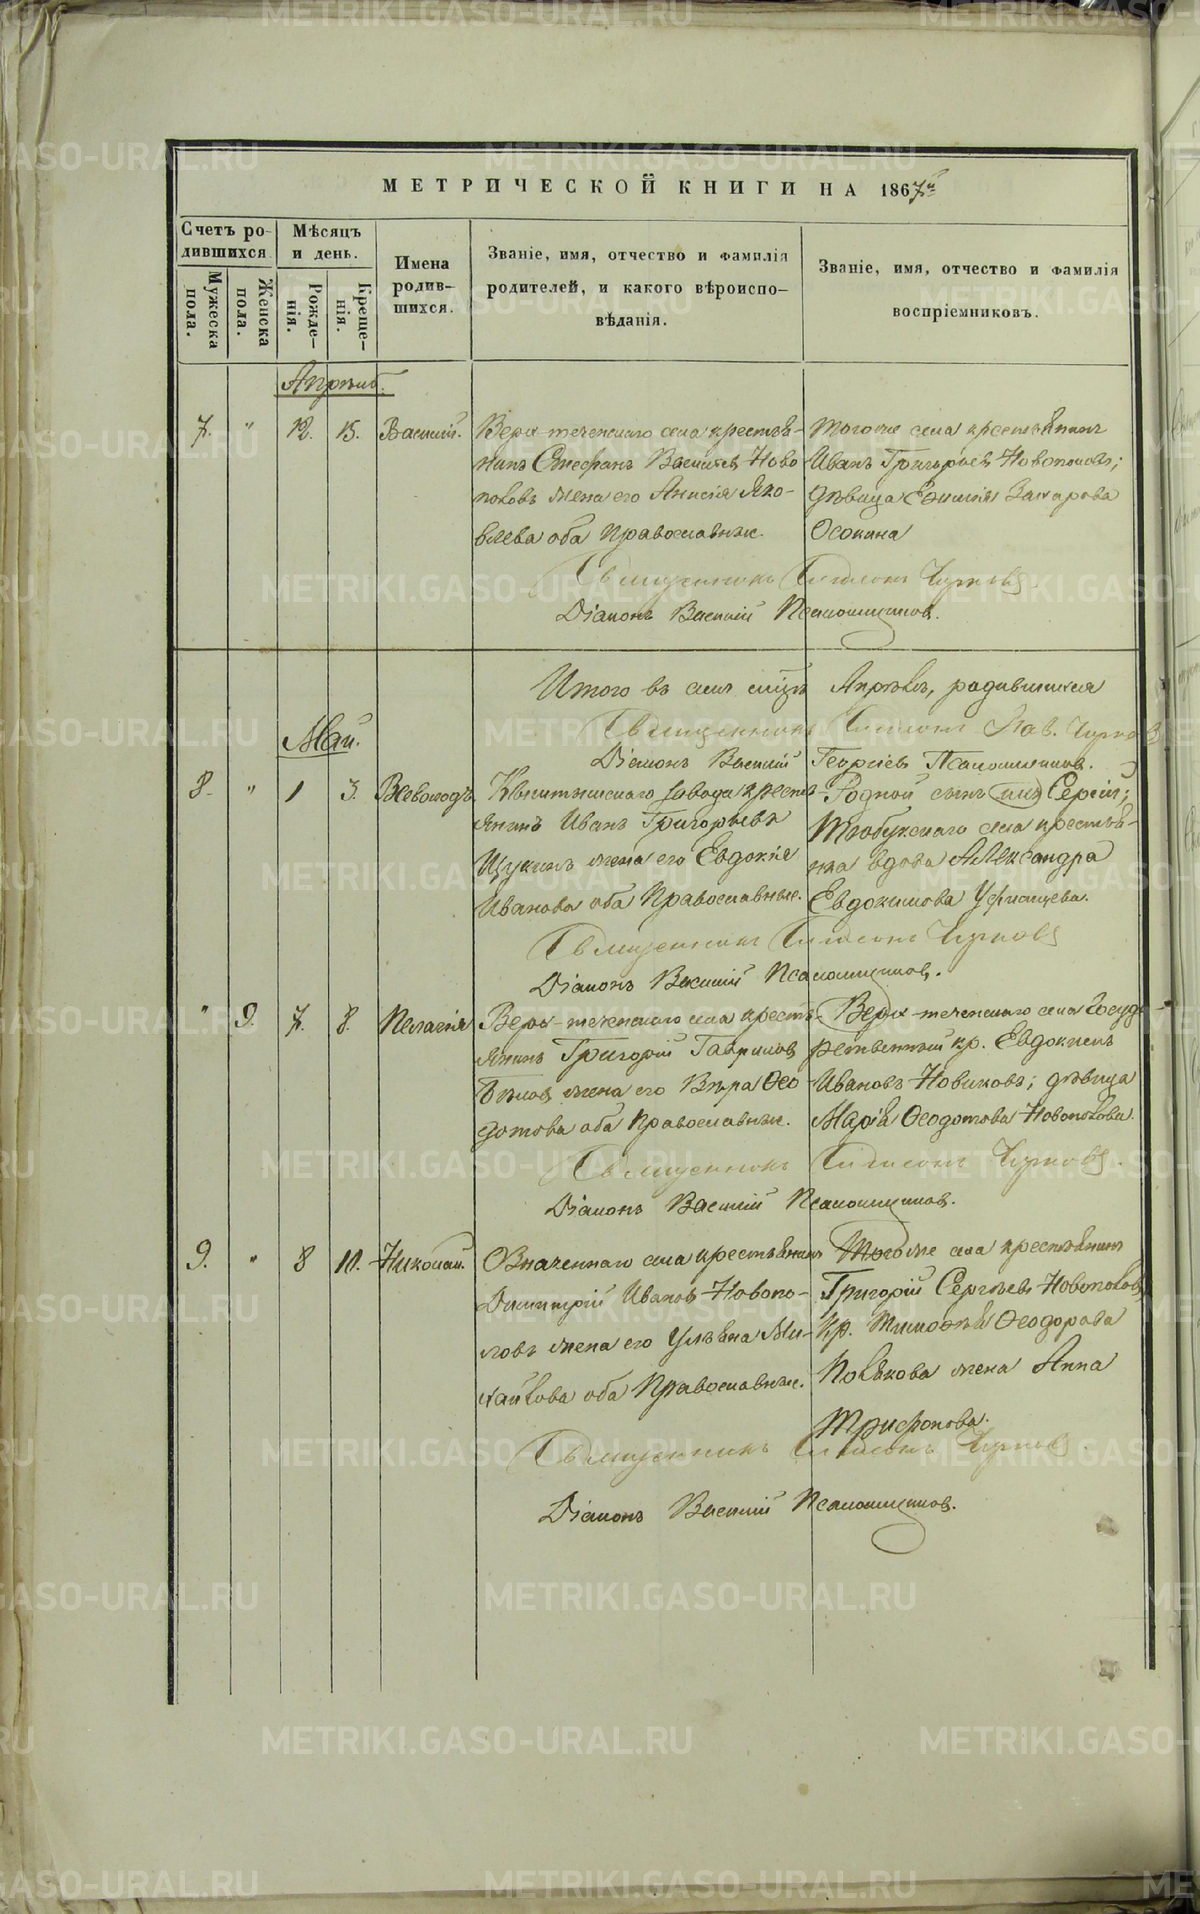 МЕТРИЧЕСКОЙ КНИГИ НА 1867й
Счетъ ро-
дившихся.
Мужеска
пола.
Женска
пола.
Мѣсяцъ
и день.
Рожде-
нія.
Креще-
нія.
Имена
родив-
шихся.
Званіе, имя, отчество и фамилія
родителей, и какого вѣроиспо-
вѣданія.
Званіе, имя, отчество и фамилія
воспріемниковъ.
Апрѣль.
7. " 12. 15. Василій.
Верх-теченскаго села крестья-
нинъ Стефанъ Васильев Ново
половъ жена его Анисія Яко-
влева оба Православные.
Тогоже села крестьянинъ
Иванъ Григорьев Новополовъ;
дѣвица Евимія Захарова
Осокина
Священникъ Чирковъ.
Діаконъ Василій Псаломщиковъ.
Итого въ семъ мцѣ Апрѣлѣ, родившихся
Священникъ Пав. Чирковъ
Діаконъ Василій Георгіев Псаломщиковъ.
Май.
8. " 1 3. Всеволодъ
Кыштымскаго завода крест
янинъ Иванъ Григорьевъ
Щукинъ жена его Евдокія
Иванова оба Православные.
Родной сынъ ихъ Сергій;
Тюбукскаго села крестья-
нка вдова Александра
Евдокимова Уфимцева.
Священникъ Чирковъ
Діаконъ Василій Псаломщиковъ.
" 9. 7. 8. Пелагія
Верх-теченскаго села кресть-
янинъ Григорій Гаврилов
Бѣлов жена его Вѣра Ѳео
дотова оба Православные.
Верх-теченскаго села Госуда
рственный кр. Евдокимъ
Ивановъ Новиковъ; дѣвица
Марія Ѳеодотова Новополова.
Священникъ Чирковъ.
Діаконъ Василій Псаломщиковъ.
9. " 8 10. Николай.
Означеннаго села крестьянинъ
Димитрій Иванов Новопо-
ловъ жена его Ульяна Ми-
хайлова оба Православные.
Тогоже села крестьянинъ
Григорій Сергѣевъ Новополовъ
кр. Тимоѳѣя Ѳеодорова
Полякова жена Анна
Трифонова.
Священникъ Чирковъ.
Діаконъ Василій Псаломщиковъ.
METRIKI.GASO-URAL.RU